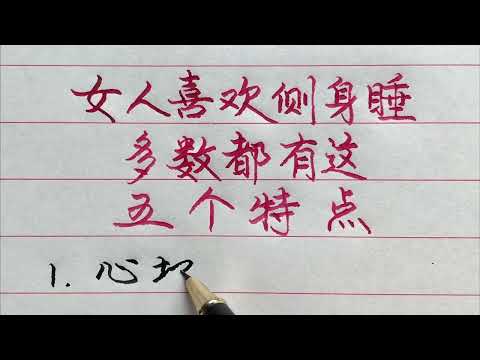 女人喜欢侧身睡
多数都有这
五个特点
1.心